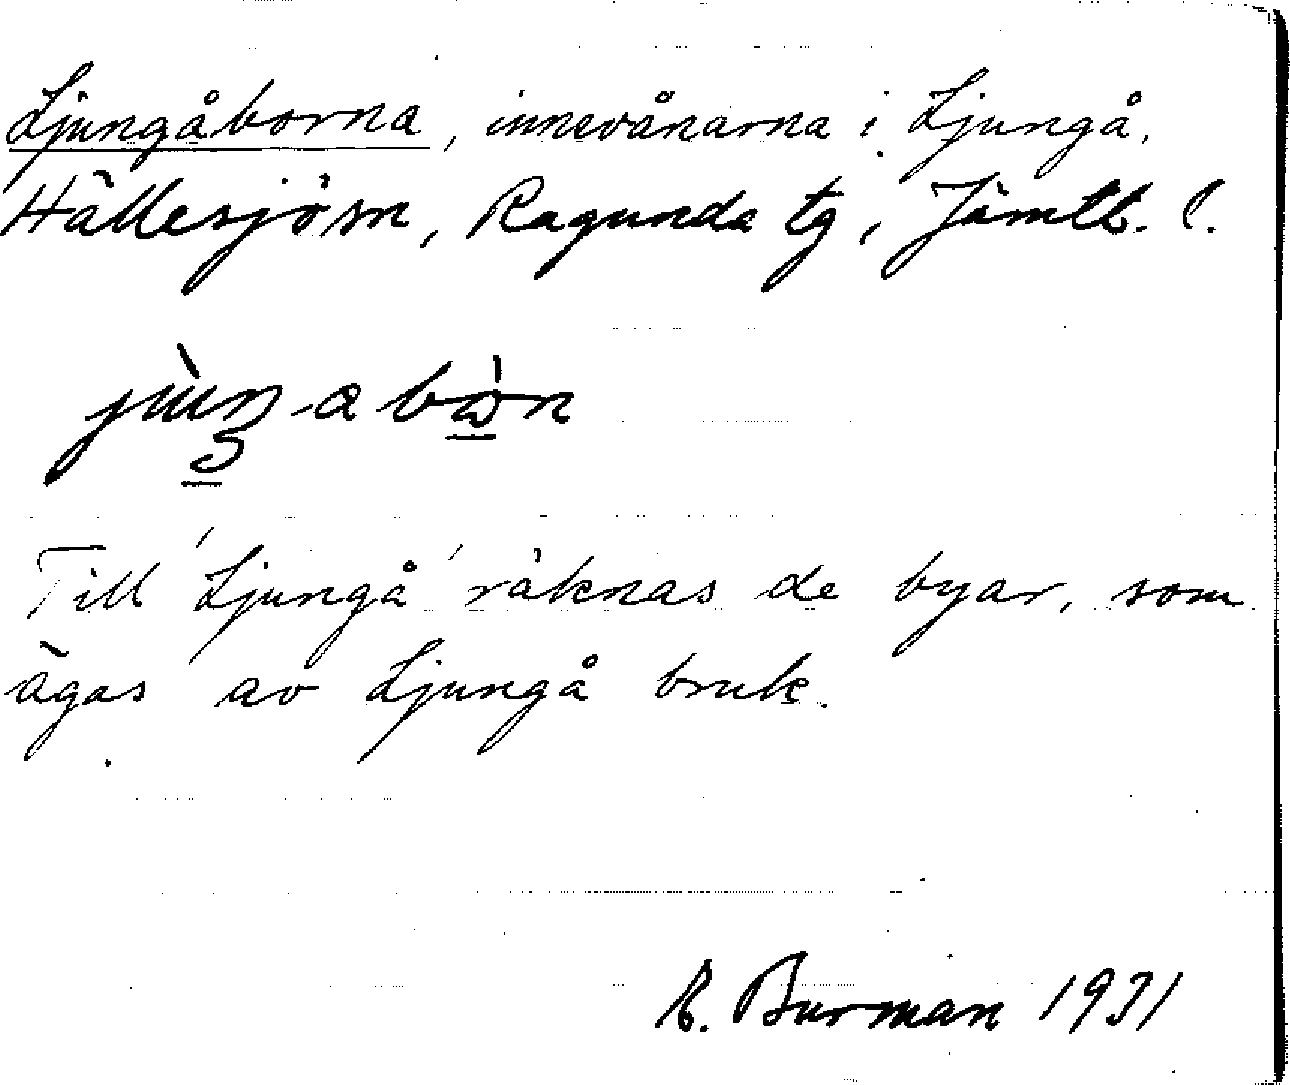 Ljungåborna, innevånarna i Ljungå,
Hällesjö sn, Ragunda tg, Jämtl. l.
Till 'Ljungå' räknas de byar, som
ägas av Ljungå bruk.
R. Burman 1931